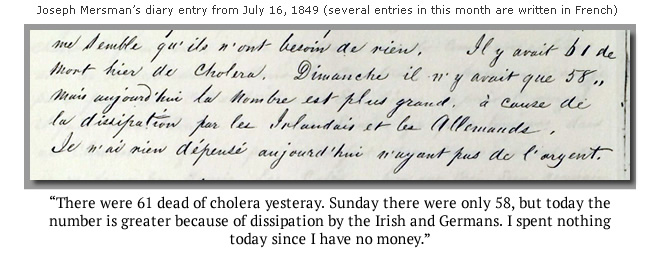 Joseph Mersman's diary entry from July 16, 1849 (several entries in this month are written in French)
me semble qu'ils n'ont besoin de rien. Il y avait 61 de
mort hier de Cholera. Dimanche il n'y avait que 58,,
Mais aujourd'hui la Nombre est plus grand. à cause de
la dissipation par les Irlandais et les Allemands.
Je n'ai rien dépensé aujourd'hui n'ayant pas de l'argent.
“There were 61 dead of cholera yesteray. Sunday there were only 58, but today the
number is greater because of dissipation by the Irish and Germans. I spent nothing
today since I have no money.”